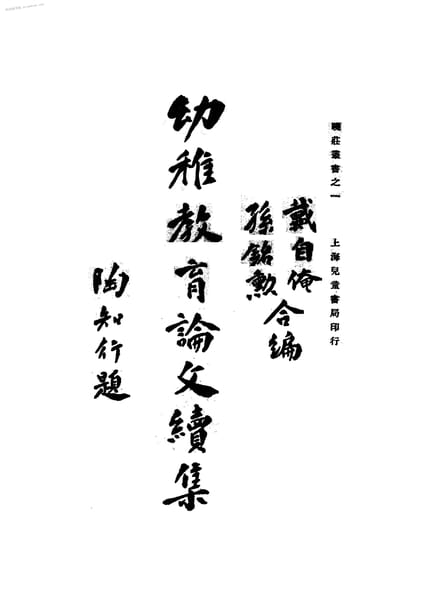 曉莊叢書之一
上海兒童書局印行
戴自俺
孫銘勳
合編
幼稚教育論文續集
陶知行題